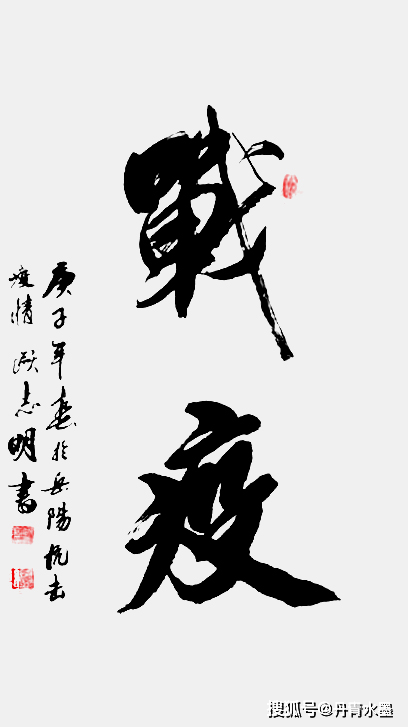 戰疫
庚子年春於岳陽抗击
疫情 志明書
搜狐号@丹青水墨